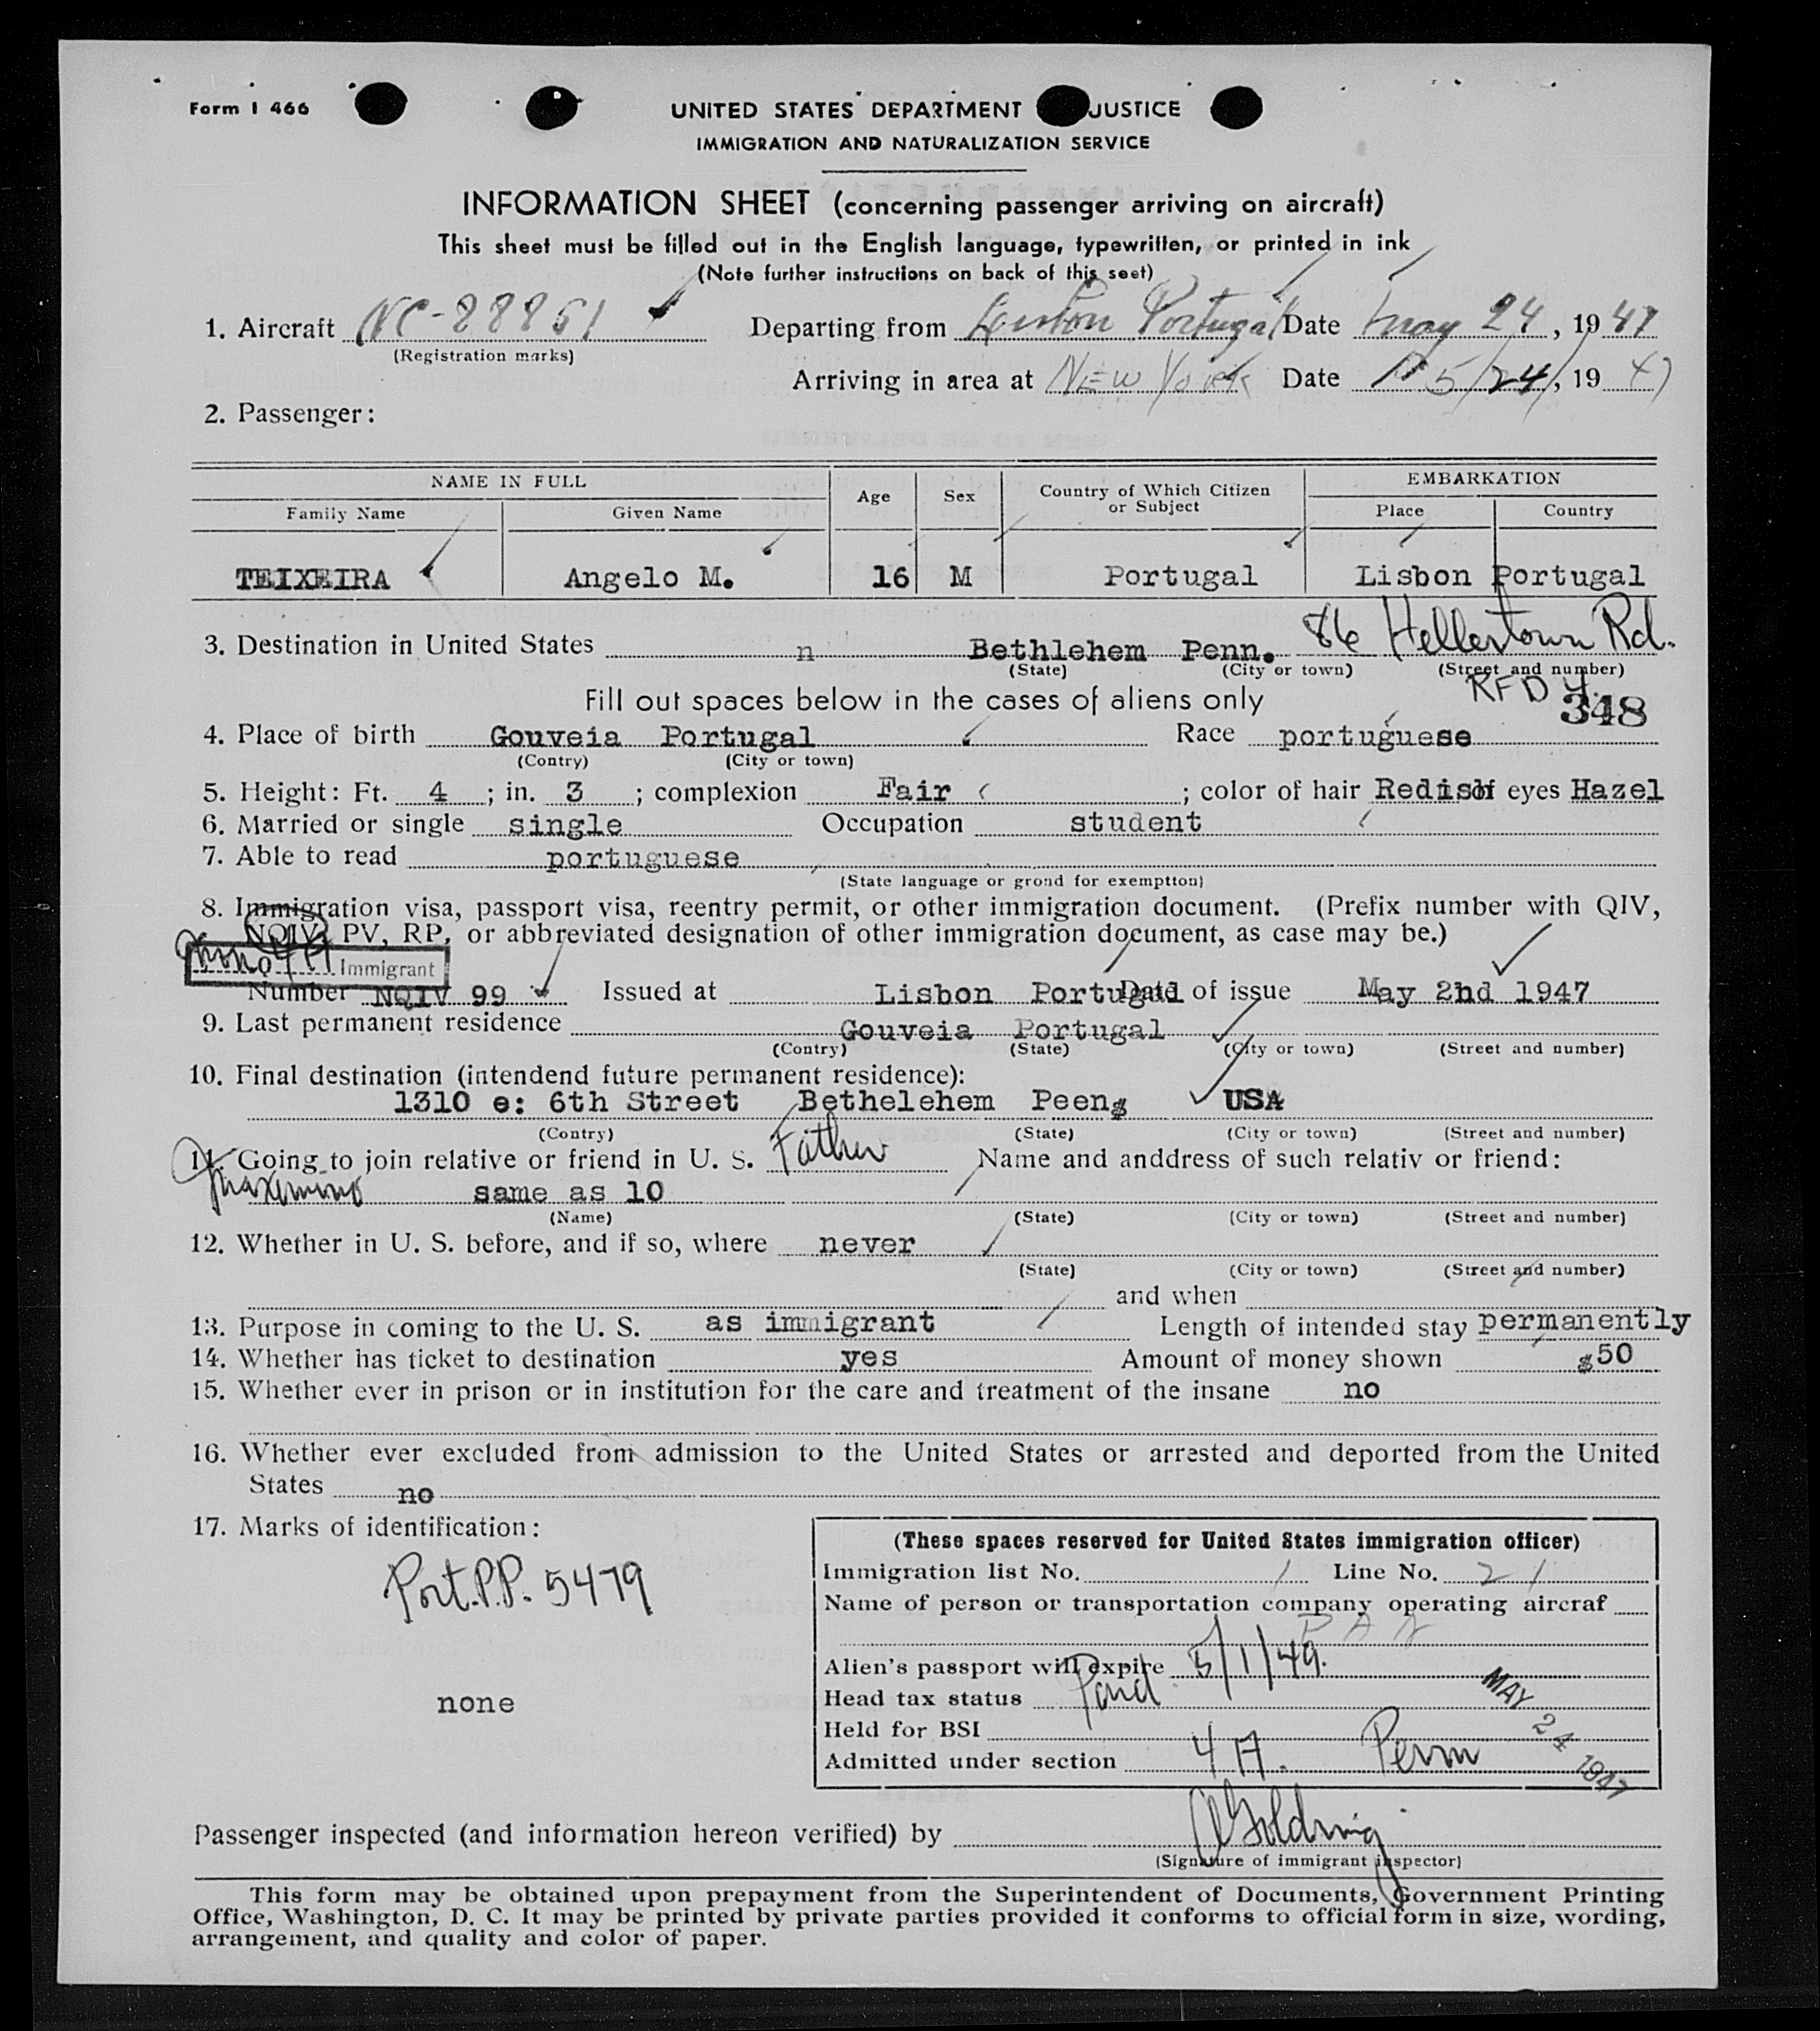 Form I 466
UNITED STATES DEPARTMENT JUSTICE
IMMIGRATION AND NATURALIZATION SERVICE
INFORMATION SHEET (concerning passenger arriving on aircraft)
This sheet must be filled out in the English language, typewritten, or printed in ink
(Note further instructions on back of this seet)
1. Aircraft NC-88861 Departing from Portugal Date May 24, 1947
(Registration marks)
Arriving in area at NEW YORK Date 5/24/, 1947
2. Passenger:
NAME IN FULL Age Sex Country of Which Citizen or Subject EMBARKATION
Family Name Given Name Place Country
TEIXEIRA Angelo M. 16 M Portugal Lisbon Portugal
3. Destination in United States n Bethlehem Penn. 86 Hellertown Rd.
(State) (City or town) (Street and number)
RFD 4.
Fill out spaces below in the cases of aliens only 348
4. Place of birth Gouveia Portugal Race portuguese
(Contry) (City or town)
5. Height: Ft. 4; in. 3; complexion Fair; color of hair Redish eyes Hazel
6. Married or single single Occupation student
7. Able to read portuguese
(State language or grond for exemptton)
8. Immigration visa, passport visa, reentry permit, or other immigration document. (Prefix number with QIV,
NQIV, PV, RP, or abbreviated designation of other immigration document, as case may be.)
Immigrant
Number NQIV 99 Issued at Lisbon Portugal Date of issue May 2nd 1947
9. Last permanent residence Gouveia Portugal
(Contry) (State) (City or town) (Street and number)
10. Final destination (intendend future permanent residence):
1310 e: 6th Street Bethelehem Peens USA
(Contry) (State) (City or town) (Street and number)
11. Going to join relative or friend in U. S. Father Name and anddress of such relativ or friend:
same as 10
(Name) (State) (City or town) (Street and number)
12. Whether in U. S. before, and if so, where never
(State) (City or town) (Street and number)
and when
13. Purpose in coming to the U. S. as immigrant Length of intended stay permanently
14. Whether has ticket to destination yes Amount of money shown $50
15. Whether ever in prison or in institution for the care and treatment of the insane no
16. Whether ever excluded from admission to the United States or arrested and deported from the United
States no
17. Marks of identification:
Port.P.P. 5479
none
(These spaces reserved for United States immigration officer)
Immigration list No. 1 Line No. 21
Name of person or transportation company operating aircraf
PAN
Alien's passport will expire 5/1/49.
Head tax status Paid
Held for BSI
Admitted under section 4A. Perm
MAY 24 1947
Passenger inspected (and information hereon verified) by
(Signature of immigrant inspector)
This form may be obtained upon prepayment from the Superintendent of Documents, Government Printing
Office, Washington, D. C. It may be printed by private parties provided it conforms to official form in size, wording,
arrangement, and quality and color of paper.